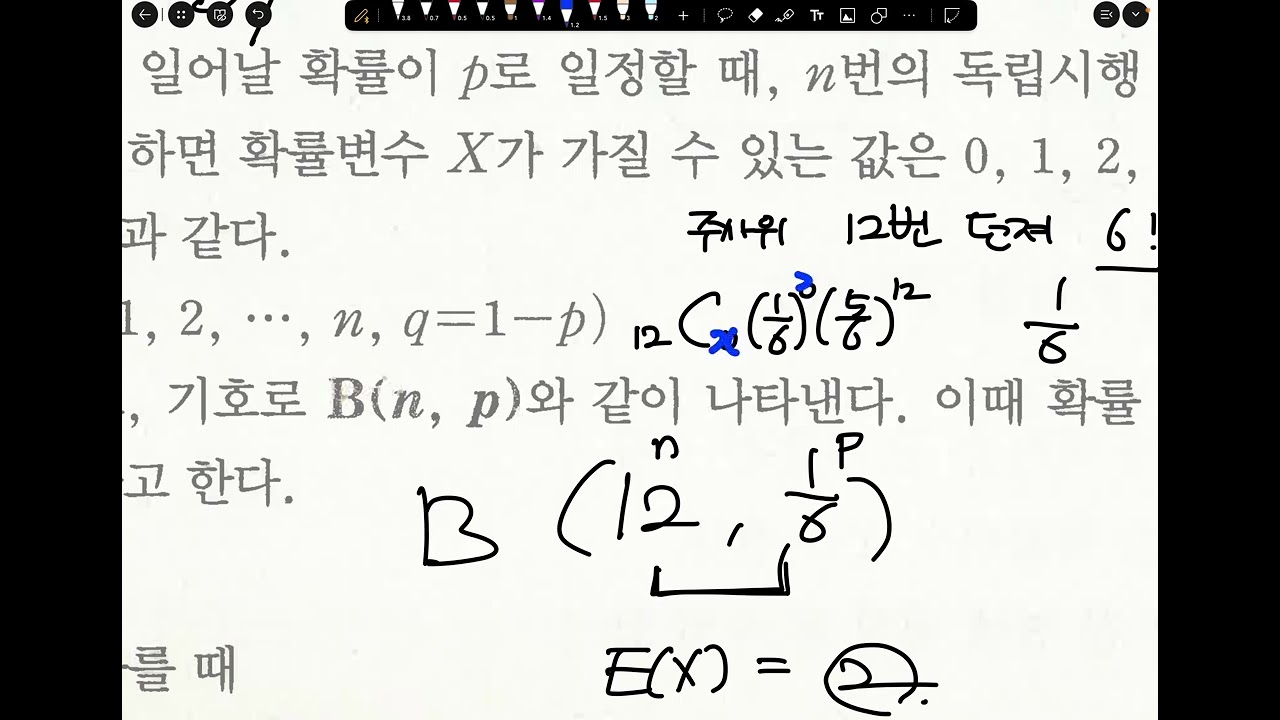 3.8 0.7 0.5 0.5 1 1.4 1.2 1.5 3 2
일어날 확률이 p로 일정할 때, n번의 독립시행
하면 확률변수 X가 가질 수 있는 값은 0, 1, 2,
과 같다.
주사위 12번 던져 6!
1, 2, ⋯, n, q=1-p) 12 C x (1/6) (5/6)^12 1/6
, 기호로 B(n, p)와 같이 나타낸다. 이때 확률
n p
고 한다.
B (12, 1/6)
를 때
E(X) = 2.